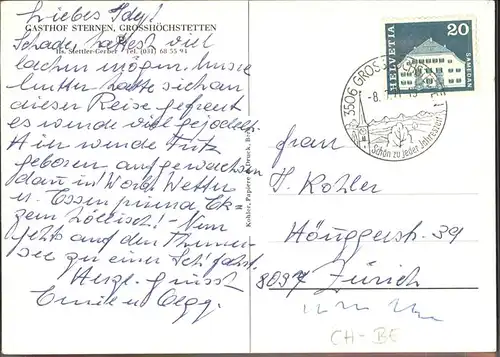 Liebes Idy!
GASTHOF STERNEN, GROSSHÖCHSTETTEN
Hs. Stettler-Gerber Tel. (031) 68 55 94
Schade, hättest viel
lachen mögen. Unsere
Mutter hatte sich an
dieser Reise gefreut
es wurde viel gejodelt.
geboren, aufgewachsen
dann in Worb. Wetter
u. Essen prima
zum
Jetzt auf den Thuner-
see zu einer Schifffahrt.
Herzl. grüsst
Emil u.
Kohler, Papiere
20
HELVETIA
SAMEDAN
3506 GROSS
-8.
Schön zu jeder Jahreszeit
Frau
J. Kohler
Hönggerstr. 39
8037 Zürich
CH-BE